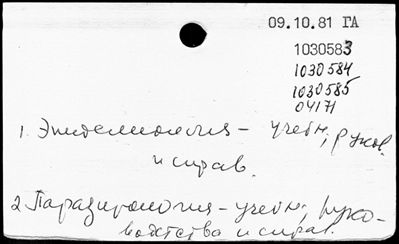 09.10.81 ГА
1030583
1030584
1030585
04171
1. Эпидемиология – учебн., руков.
и справ.
2. Паразитология – учебн., руко-
водства и справ.